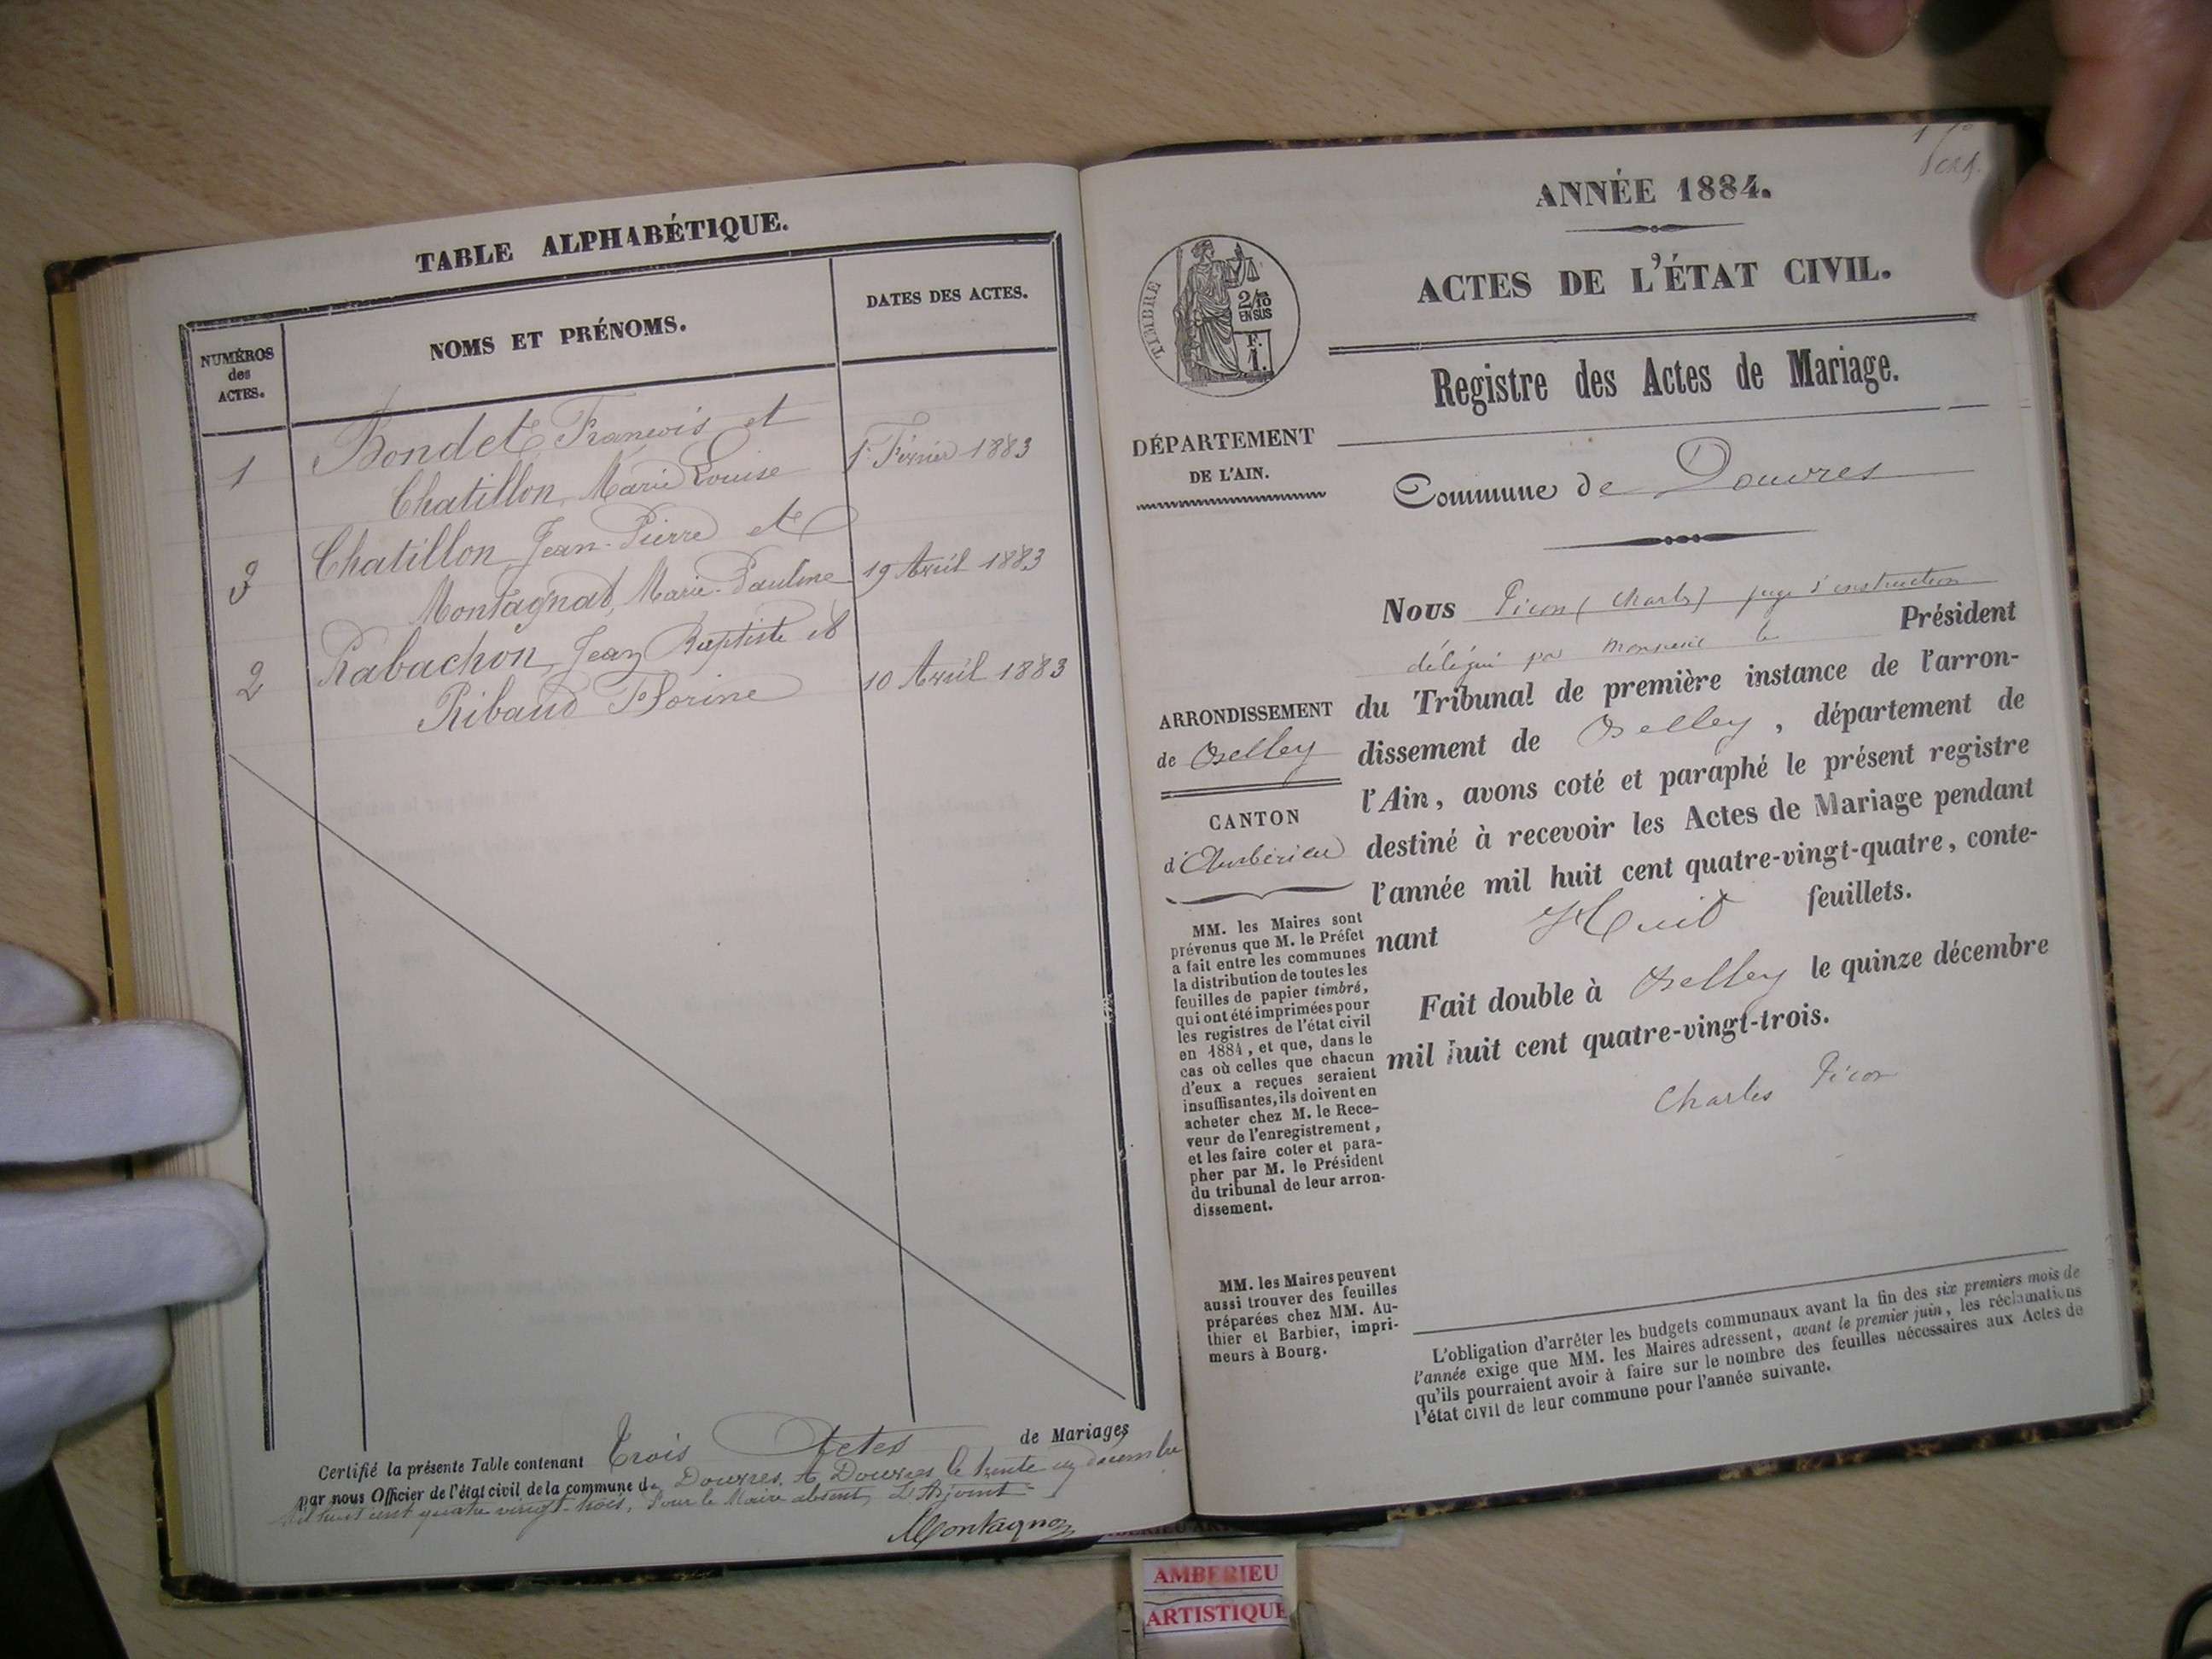 TABLE ALPHABÉTIQUE.
NUMÉROS
des
ACTES.
NOMS ET PRÉNOMS.
DATES DES ACTES.
1
Bondet, François et
Chatillon, Marie Louise
1er Février 1883
3
Chatillon, Jean-Pierre et
Montagnat, Marie-Pauline
19 Avril 1883
2
Rabachon, Jean Baptiste et
Ribaud Florine
10 Avril 1883
Certifié la présente Table contenant Trois Actes de Mariages
par nous Officier de l'état civil de la commune de Douvres. A Douvres le trente un décembre
mil huit cent quatre vingt-trois, Pour le Maire absent, L'Adjoint
1er
ANNÉE 1884.
ACTES DE L'ÉTAT CIVIL.
TIMBRE
2/10
EN SUS
F.
1.
Registre des Actes de Mariage.
DÉPARTEMENT
DE L'AIN.
Commune de Douvres
Nous Picon (Charles) juge d'instruction
délégué par Monsieur le Président
du Tribunal de première instance de l'arron-
dissement de Belley, département de
l'Ain, avons coté et paraphé le présent registre
destiné à recevoir les Actes de Mariage pendant
l'année mil huit cent quatre-vingt-quatre, conte-
nant Huit feuillets.
Fait double à Belley le quinze décembre
mil huit cent quatre-vingt-trois.
Charles Picon
ARRONDISSEMENT
de Belley
CANTON
d'Ambérieu
MM. les Maires sont
prévenus que M. le Préfet
a fait entre les communes
la distribution de toutes les
feuilles de papier timbré,
qui ont été imprimées pour
les registres de l'état civil
en 1884, et que, dans le
cas où celles que chacun
d'eux a reçues seraient
insuffisantes, ils doivent en
acheter chez M. le Rece-
veur de l'enregistrement,
et les faire coter et para-
pher par M. le Président
du tribunal de leur arron-
dissement.
MM. les Maires peuvent
aussi trouver des feuilles
préparées chez MM. Au-
thier et Barbier, impri-
meurs à Bourg.
L'obligation d'arrêter les budgets communaux avant la fin des six premiers mois de
l'année exige que MM. les Maires adressent, avant le premier juin, les réclamations
qu'ils pourraient avoir à faire sur le nombre des feuilles nécessaires aux Actes de
l'état civil de leur commune pour l'année suivante.
AMBERIEU
ARTISTIQUE